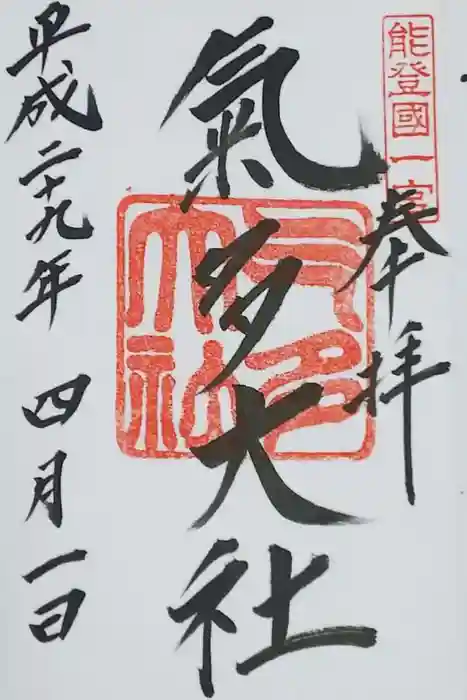 能登國一宮
奉拝
氣多大社
气多大社
平成二十九年 四月一日